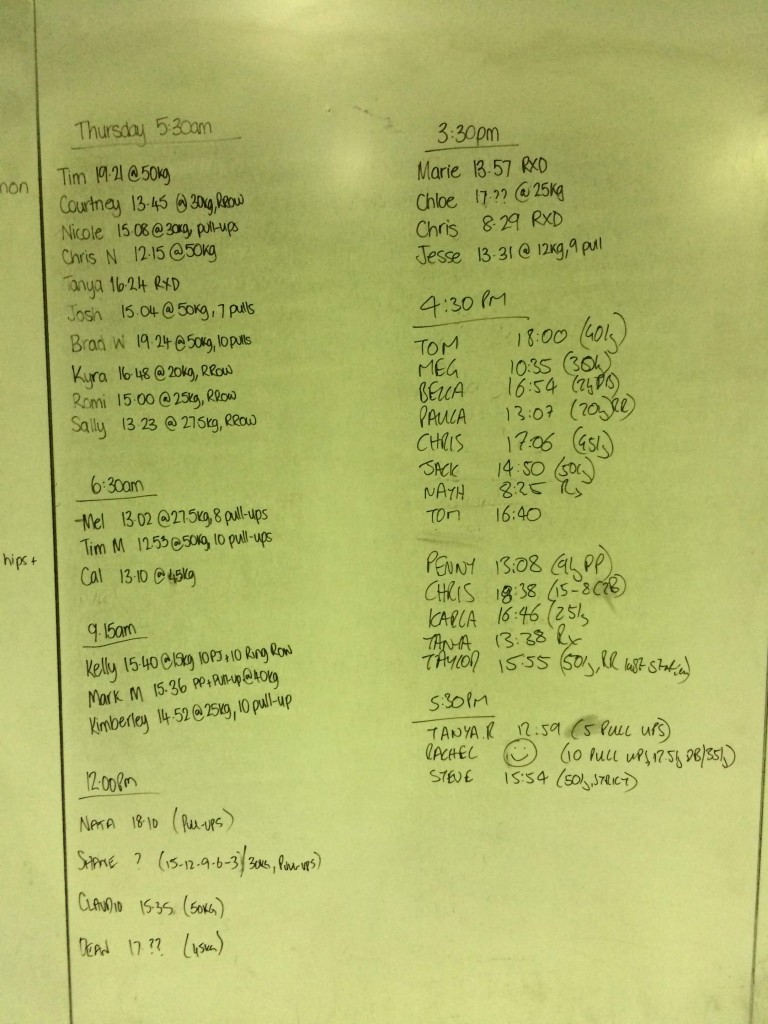 non
hips +
Thursday 5:30am
Tim 19.21 @50kg
Courtney 13.45 @30kg, RROW
Nicole 15.08 @30kg, pull-ups
Chris N 12.15 @50kg
Tanya 16.24 RXD
Josh 15.04 @50kg, 7 pulls
Brad W 19.24 @50kg, 10 pulls
Kyra 16.48 @20kg, RROW
Romi 15.00 @25kg, RROW
Sally 13.23 @27.5kg, RROW
6:30am
-Mel 13.02 @27.5kg, 8 pull-ups
Tim M 12.53 @50kg, 10 pull-ups
Cal 13.10 @45kg
9.15am
Kelly 15.40 @15kg 10PJ + 10 Ring Row
Mark M 15.36 PP + Pull-up @40kg
Kimberley 14.52 @25kg, 10 pull-up
12:00pm
18.10 (Pull-ups)
SHANE ? (15-12-9-6-3/30kg, Pull-ups)
CLAUDIO 15.35 (50KG)
DEAN 17.?? (45KG)
3:30pm
Marie 13.57 RXD
Chloe 17.?? @25kg
Chris 8.29 RXD
Jesse 13.31 @12kg, 9 pull
4:30 PM
TOM 18:00 (40kg)
MEG 10:35
BELLA 16:54
PAULA 13:07 (20kg RR)
CHRIS 17:06 (45kg)
JACK 14:50 (50kg)
NATH 8:25 Rx
TOM 16:40
PENNY 13:08 PP)
CHRIS 18:38 (15-8 C2B)
KARLA 16:46 (25kg
TANIA 13:38 Rx
TAYLOR 15:55 (50kg, RR last station)
5:30PM
TANYA.R 12.59 (5 PULL UPS)
RACHEL (10 PULL UPS, 17.5kg DB/35kg)
STEVE 15:54 (50kg, STRICT)